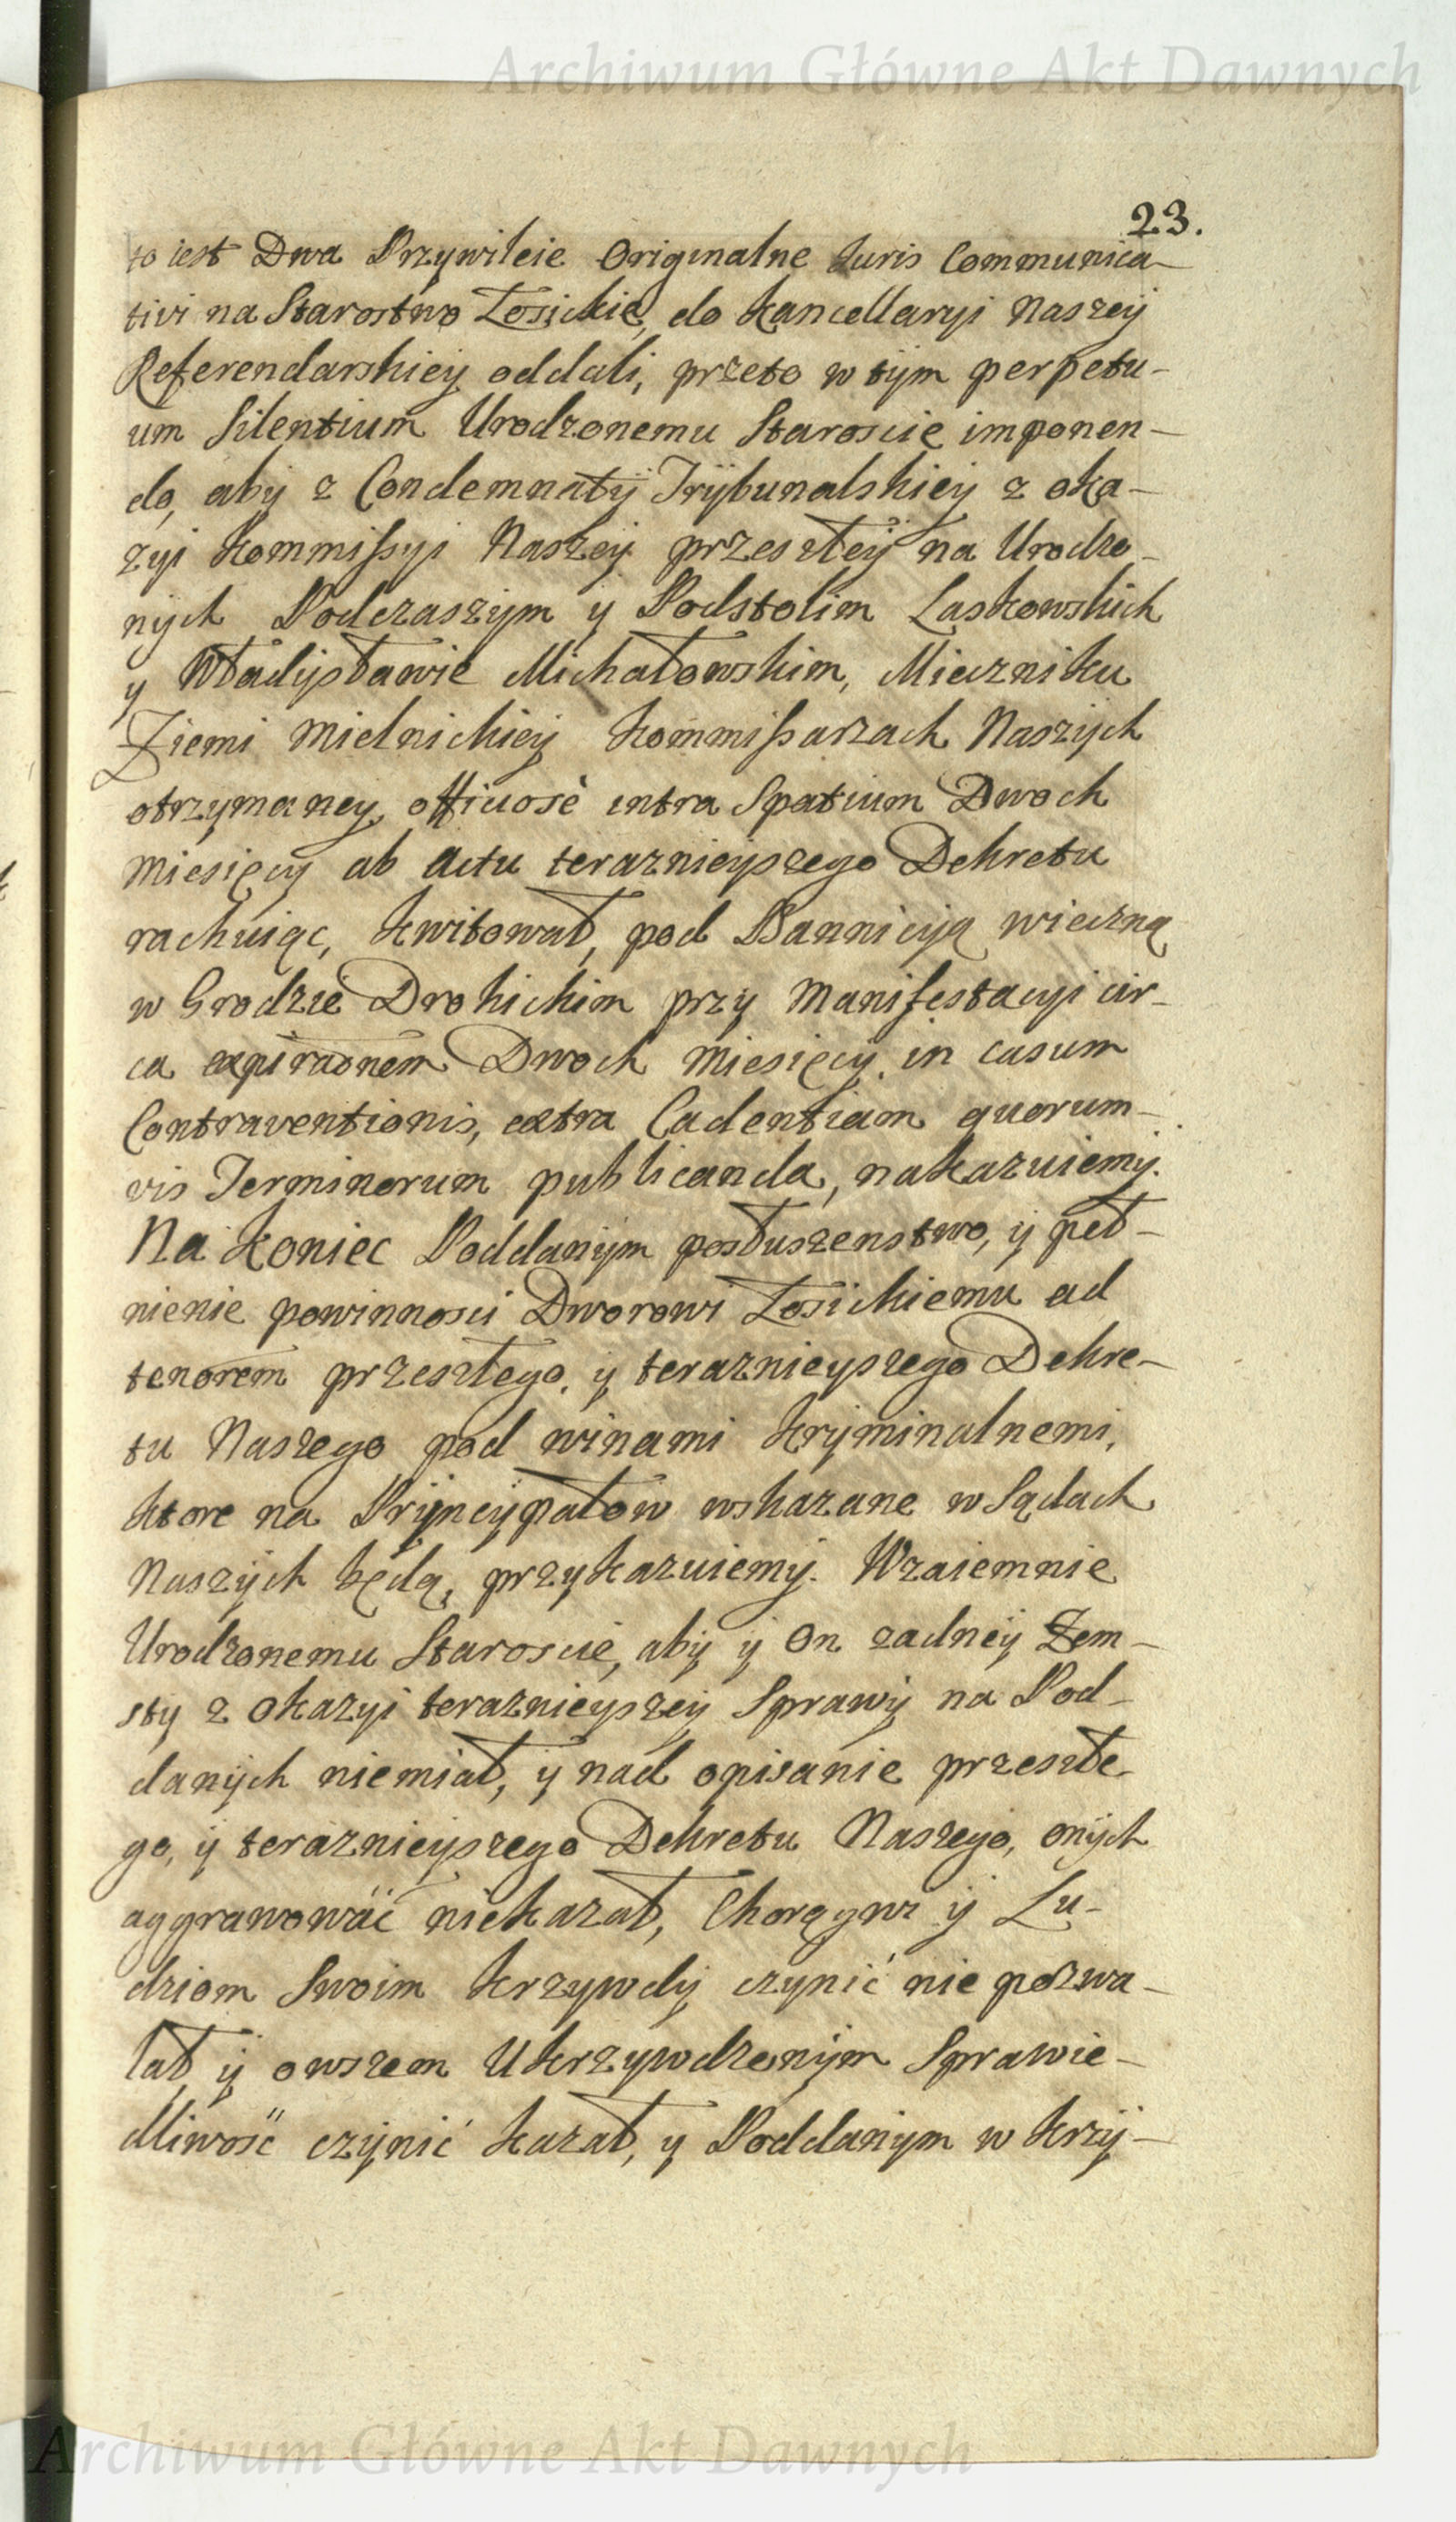 Archiwum Główne Akt Dawnych
23.
to iest Dwa Przywileie Originalne Juris Communica-
tivi na Starostwo Łosickie, do Kancellaryi Naszey
Referendarskiey oddali, przeto w tym perpetu-
um Silentium Urodzonemu Staroscie imponen-
do, aby z Condemnaty Trybunalskiey z oka-
zyi Kommissyi Naszey przeszłey na Urodzo-
nych Podczaszym y Podstolim Laskowskich
y Władysławie Michałowskim, Mieczniku
Ziemi Mielnickiey Kommissarzach Naszych
otrzymaney, officiosè intra Spatium Dwoch
Miesięcy ab Actu teraznieyszego Dekretu
rachuiąc, kwitował, pod Bannicyą wieczną
w Grodzie Drohickim przy Manifestacyi cir-
ca expiraōnem Dwoch Miesięcy, in casum
Contraventionis, extra Cadentiam quorum-
vis Terminorum publicanda, nakazuiemy.
Na koniec Poddanym posłuszenstwo, y peł-
nienie powinnosci Dworowi Łosickiemu ad
tenorem przeszłego, y teraznieyszego Dekre-
tu Naszego pod winami kryminalnemi,
ktore na Pryncypałow wskazane w Sądach
Naszych będą, przykazuiemy. Wzaiemnie
Urodzonemu Staroscie, aby y On zadney Zem-
sty z okazyi teraznieyszey Sprawy na Pod-
danych niemiał, y nad opisanie przeszłe-
go, y teraznieyszego Dekretu Naszego, onych
aggrawować niekazał, Chorągwi y Lu-
dziom Swoim krzywdy czynić nie pozwa-
lał y owszem Ukrzywdzonym Sprawie-
dliwość czynić kazał, y Poddanym w krzy-
Archiwum Główne Akt Dawnych